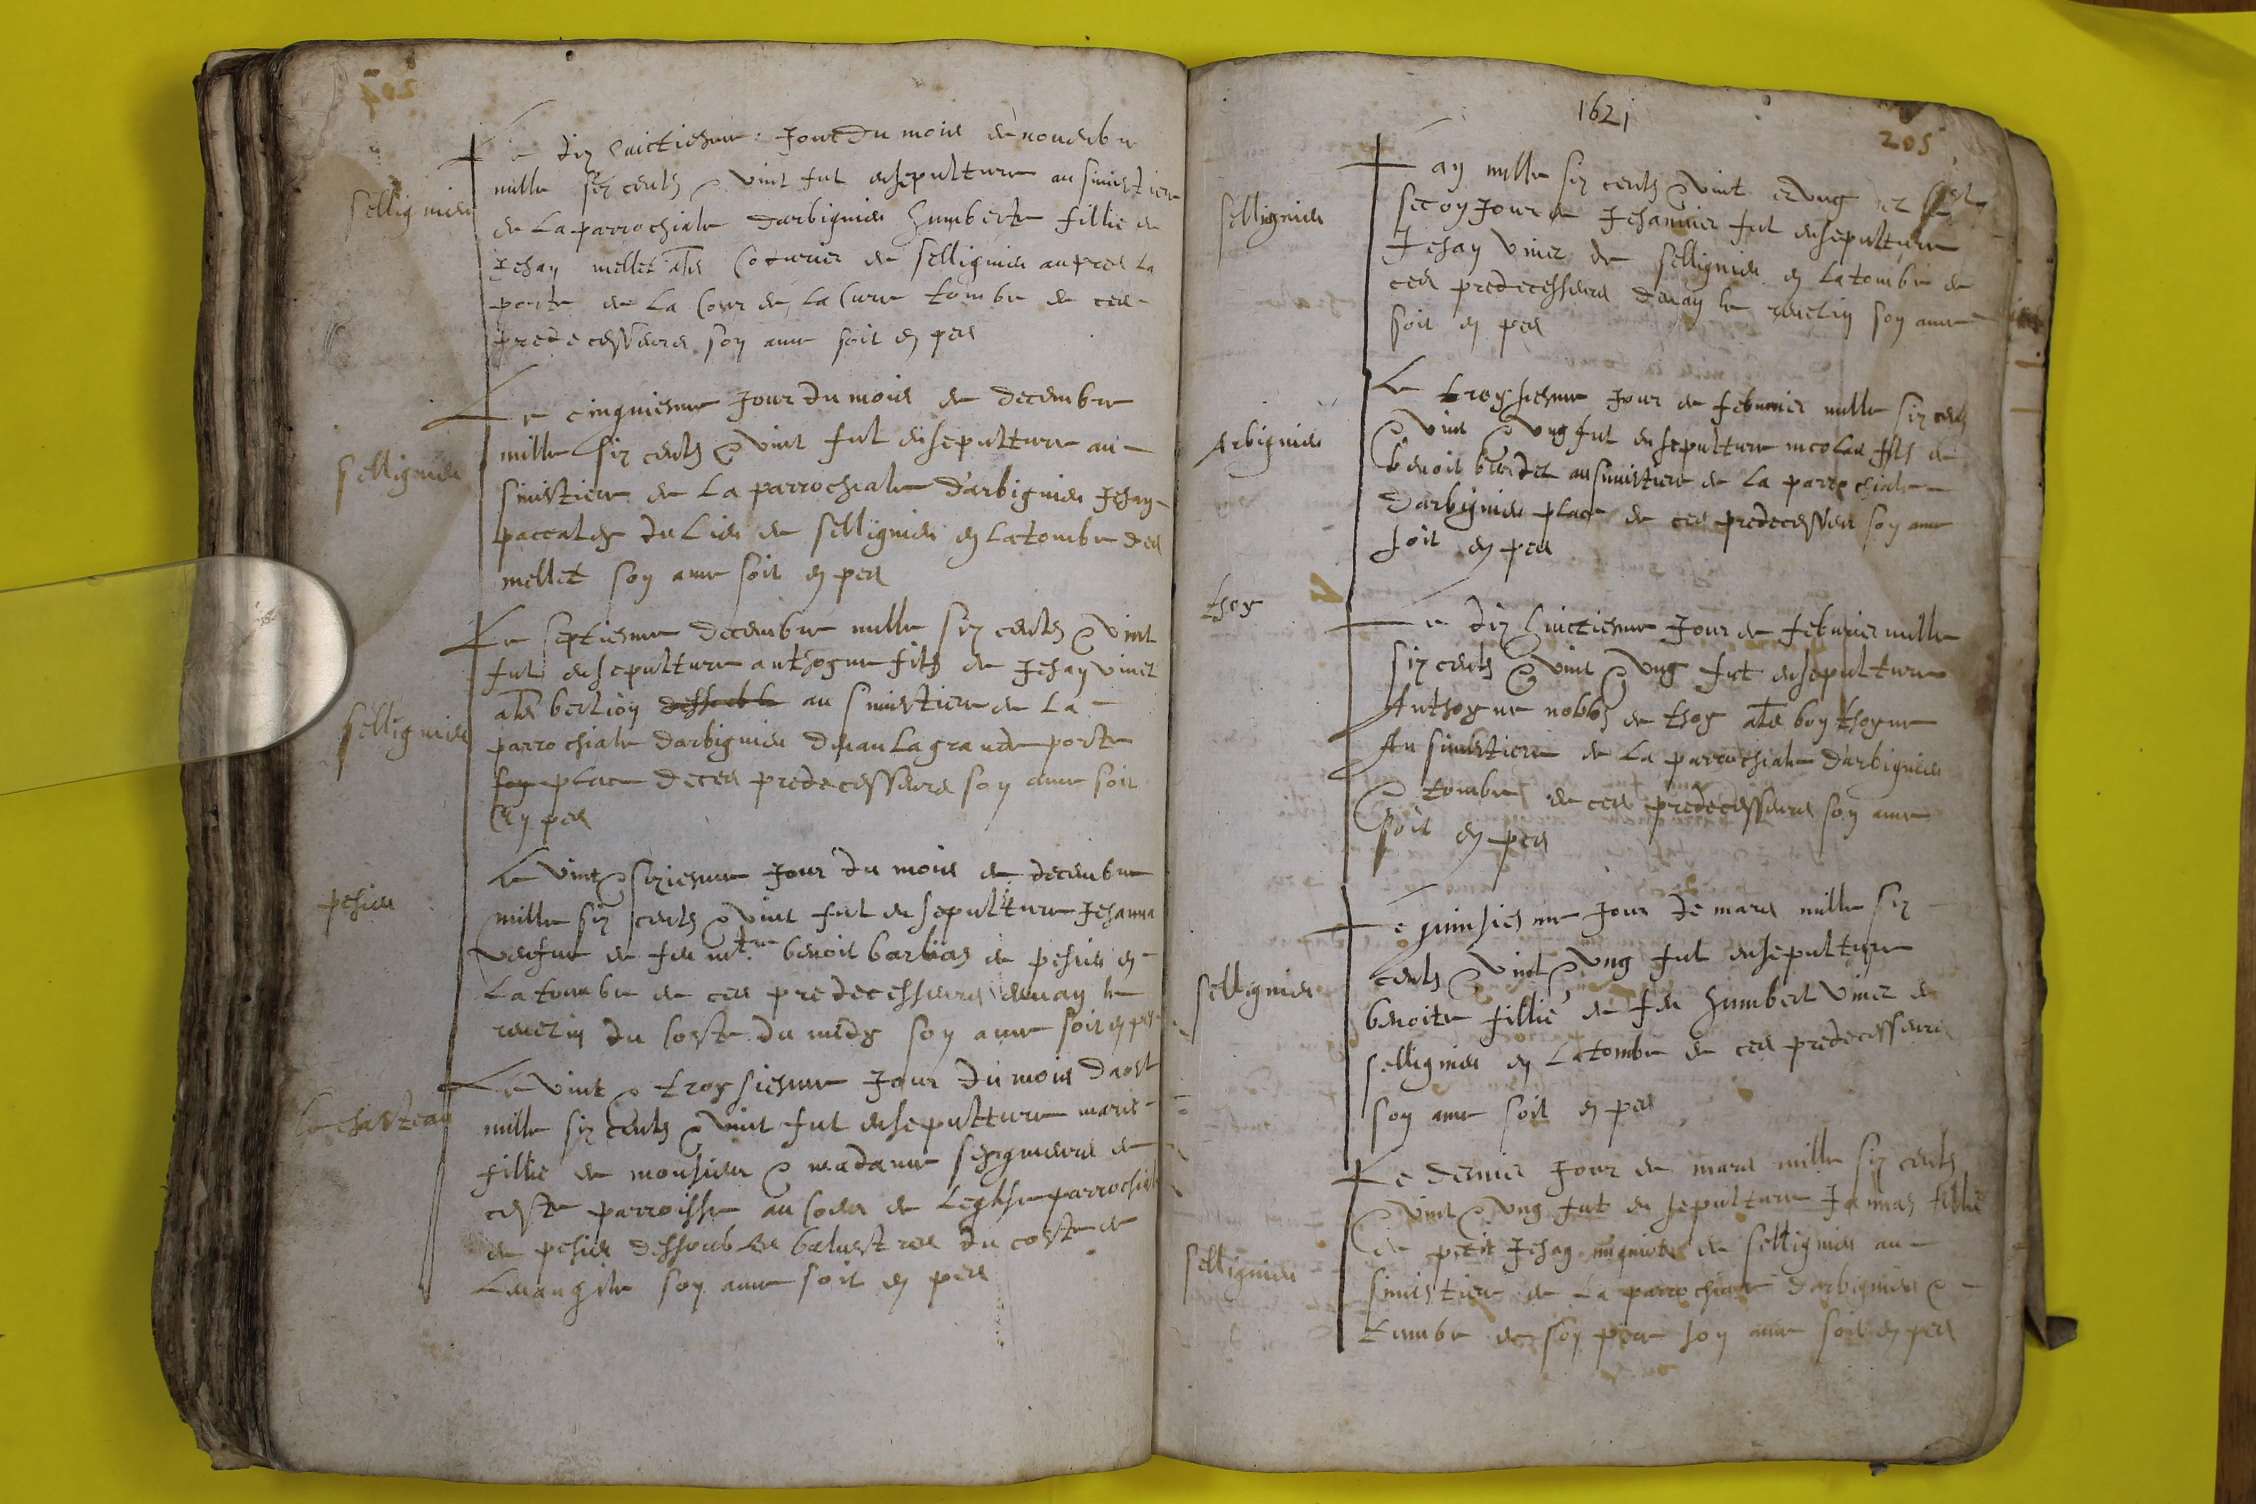 204
Le dix huictiesme Jour du mois de novembre
sellignieu
mille six cents & vint fut ensepulture au simistiere
de La parrochiale Darbignieu humberte fillie de
Jehan mellet als Coturier de sellignieu aupres La
porte de La Cour de La Cure tombe de ces
predecesseurs son ame soit en pes
Le cinquiesme Jour du mois de decembre
sellignieu
mille six cents & vint fut ensepulture au
simistiere de La parrochiale d'arbignieu Jehan
paccalez du Lieu de sellignieu en La tombe des
mellet son ame soit en pes
Le septiesme decembre mille six cents & vint
fut ensepulture anthoyne fils de Jehan vinet
sellignieu
als berlion au simistiere de La
parrochiale darbignieu devan La grande porte
place de ces predecesseurs son ame soit
en pes
Le vint & sixiesme Jour du mois de decembre
pesieu
mille six cents & vint fut ensepulture Jehanna
vesfue de feu mtre benoit barliaz de pesieu en
La tombe de ces predecesseurs devan le
revelin du Coste du midy son ame soit en pes
Le vint & troysiesme Jour du mois daost
Le chasteau
mille six cents & vint fut ensepulture marie
fillie de monsieur & madame seigneurs de
ceste parroisse au Coeur de Leglise parrochiale
de pesieu dessoub Les balustres du coste de
Levangile son ame soit en pes
1621
205
Lan mille six cents & vint & ung et le
sellignieu
secon Jour de Jehanvier fut ensepulture
Jehan vinet de sellignieu en La tombe de
ces predecesseurs devan le revelin son ame
soit en pes
Le troysiesme Jour de febvrier mille six cents
Arbignieu
& vint & ung fut ensepulture nicolas fils de
benoit au simistiere de La parrochiale
Darbignieu place de ces predecesseurs son ame
soit en pes
thoy
Le dix huictiesme Jour de febvrier mille
six cents & vint & ung fut ensepulture
Anthoyne de thoy als bon thoyne
Au simistiere de La parrochiale d'arbignieu
& tombe de ces predecesseurs son ame
soit en pes
Le quinsiesme Jour de mars mille six
sellignieu
cents & vint & ung fut ensepulture
benoite fillie de feu humbert vinet de
sellignieu en La tombe de ces predecesseurs
son ame soit en pes
Le dernier Jour de mars mille six cents
& vint & ung fut ensepulture fillie
sellignieu
de petit Jehan de sellignieu au
simistiere de La parrochiale darbignieu &
tumbe de son pere son ame soit en pes